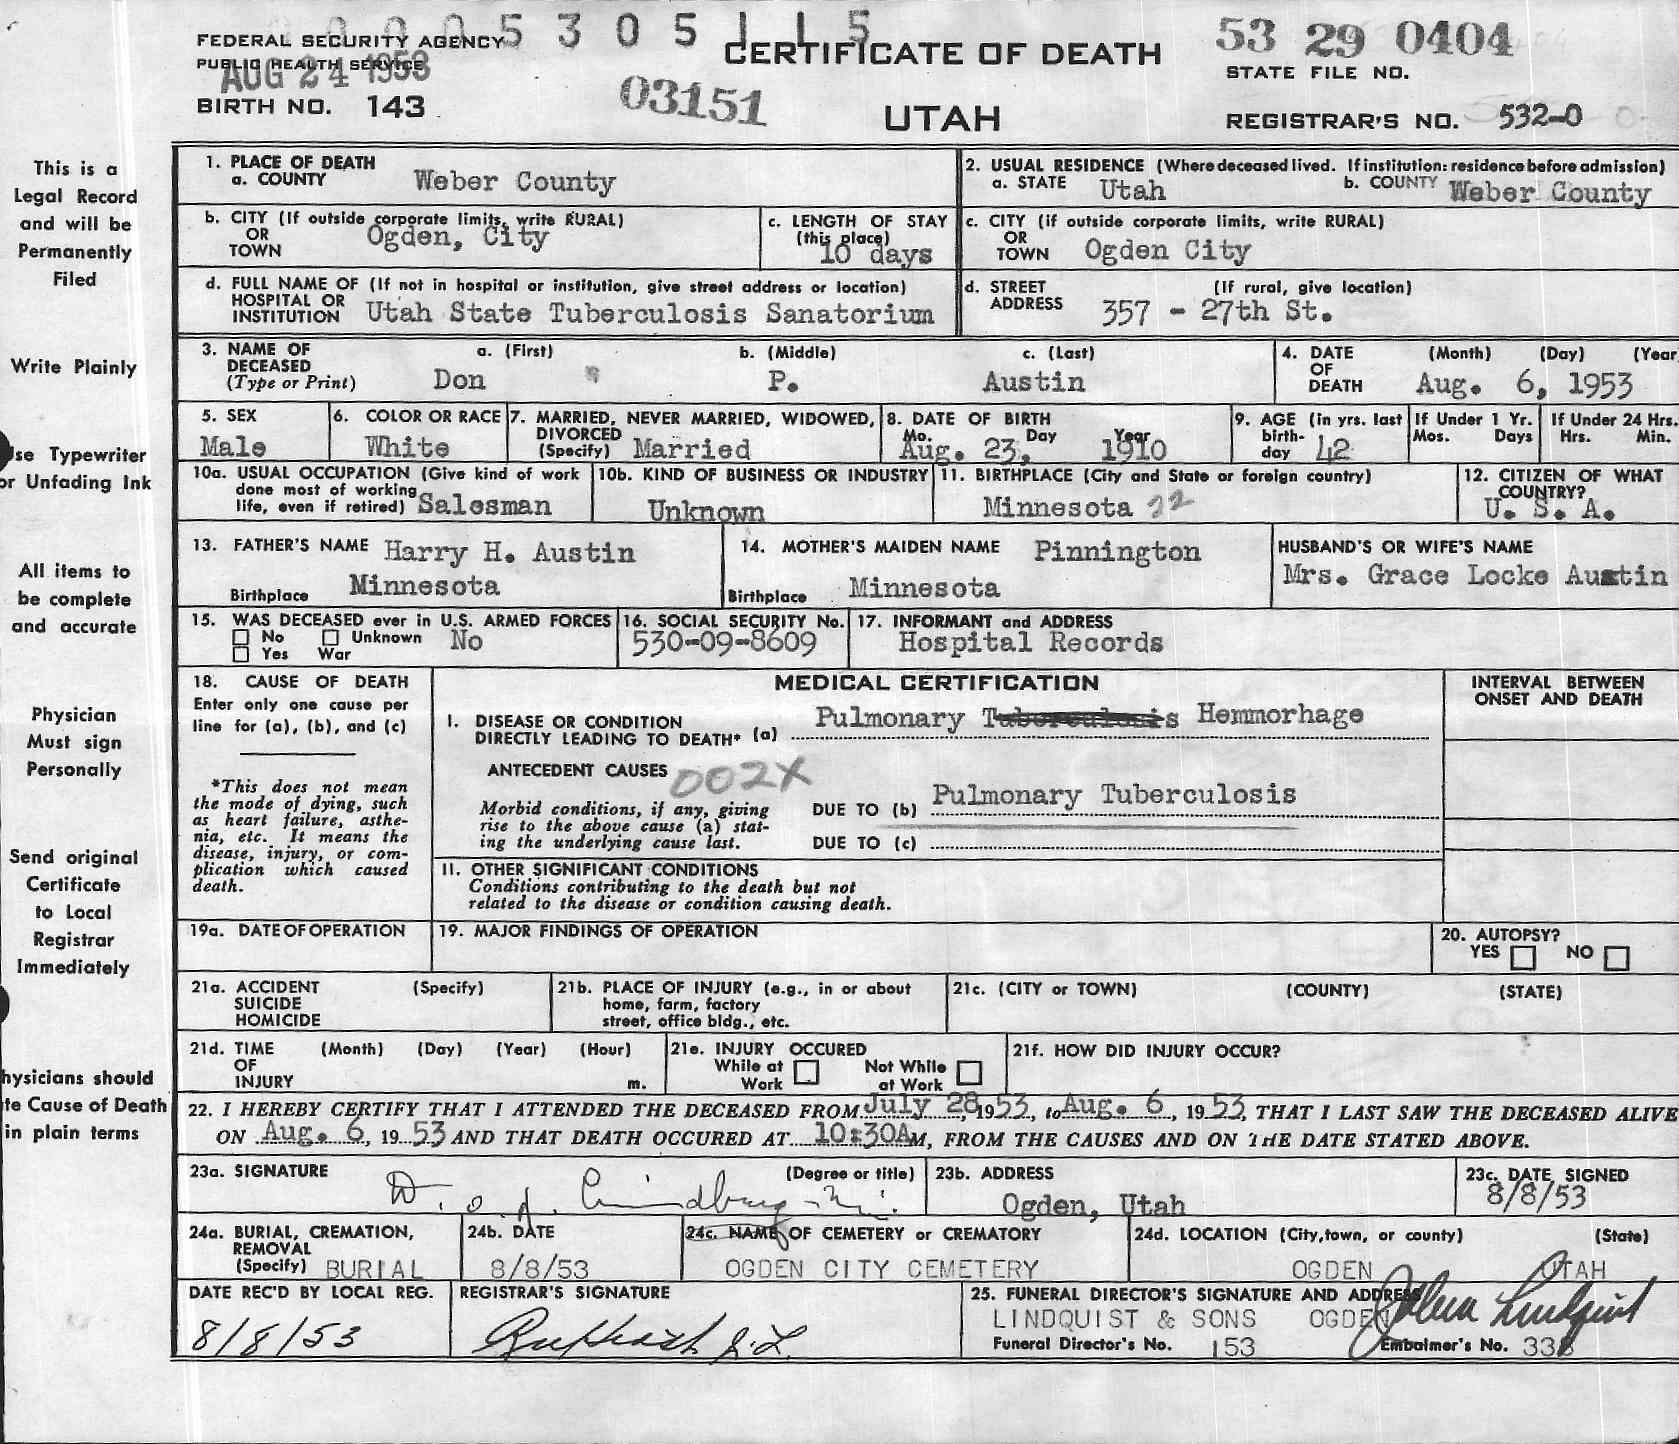 0005305115
FEDERAL SECURITY AGENCY
PUBLIC HEALTH SERVICE
AUG 24 1953
BIRTH NO. 143
03151
CERTIFICATE OF DEATH
UTAH
53 29 0404
STATE FILE NO.
REGISTRAR'S NO. 532-0
This is a
Legal Record
and will be
Permanently
Filed
Write Plainly
se Typewriter
or Unfading Ink
All items to
be complete
and accurate
Physician
Must sign
Personally
Send original
Certificate
to Local
Registrar
Immediately
hysicians should
te Cause of Death
in plain terms
1. PLACE OF DEATH
a. COUNTY Weber County
2. USUAL RESIDENCE (Where deceased lived. If institution: residence before admission)
a. STATE Utah b. COUNTY Weber County
b. CITY (If outside corporate limits, write RURAL)
OR
TOWN Ogden, City
c. LENGTH OF STAY
(this place)
10 days
c. CITY (if outside corporate limits, write RURAL)
OR
TOWN Ogden City
d. FULL NAME OF (If not in hospital or institution, give street address or location)
HOSPITAL OR
INSTITUTION Utah State Tuberculosis Sanatorium
d. STREET (If rural, give location)
ADDRESS 357 - 27th St.
3. NAME OF DECEASED (Type or Print)
a. (First) b. (Middle) c. (Last)
Don P. Austin
4. DATE OF DEATH (Month) (Day) (Year
Aug. 6, 1953
5. SEX
Male
6. COLOR OR RACE
White
7. MARRIED, NEVER MARRIED, WIDOWED,
DIVORCED
(Specify) Married
8. DATE OF BIRTH
Mo. Day Year
Aug. 23, 1910
9. AGE (in yrs. last
birth-
day 42
If Under 1 Yr.
Mos. Days
If Under 24 Hrs.
Hrs. Min.
10a. USUAL OCCUPATION (Give kind of work
done most of working
life, even if retired) Salesman
10b. KIND OF BUSINESS OR INDUSTRY
Unknown
11. BIRTHPLACE (City and State or foreign country)
Minnesota 22
12. CITIZEN OF WHAT
COUNTRY?
U. S. A.
13. FATHER'S NAME Harry H. Austin
Birthplace Minnesota
14. MOTHER'S MAIDEN NAME Pinnington
Birthplace Minnesota
HUSBAND'S OR WIFE'S NAME
Mrs. Grace Locke Austin
15. WAS DECEASED ever in U.S. ARMED FORCES
No Unknown No
Yes War
16. SOCIAL SECURITY No.
530-09-8609
17. INFORMANT and ADDRESS
Hospital Records
18. CAUSE OF DEATH
Enter only one cause per
line for (a), (b), and (c)
*This does not mean
the mode of dying, such
as heart failure, asthe-
nia, etc. It means the
disease, injury, or com-
plication which caused
death.
MEDICAL CERTIFICATION
INTERVAL BETWEEN
ONSET AND DEATH
I. DISEASE OR CONDITION
DIRECTLY LEADING TO DEATH* (a) Pulmonary Tuberculosis Hemmorhage
ANTECEDENT CAUSES 002X
Morbid conditions, if any, giving
rise to the above cause (a) stat-
ing the underlying cause last.
DUE TO (b) Pulmonary Tuberculosis
DUE TO (c)
II. OTHER SIGNIFICANT CONDITIONS
Conditions contributing to the death but not
related to the disease or condition causing death.
19a. DATE OF OPERATION
19. MAJOR FINDINGS OF OPERATION
20. AUTOPSY?
YES NO
21a. ACCIDENT (Specify)
SUICIDE
HOMICIDE
21b. PLACE OF INJURY (e.g., in or about
home, farm, factory
street, office bldg., etc.
21c. (CITY or TOWN) (COUNTY) (STATE)
21d. TIME (Month) (Day) (Year) (Hour)
OF
INJURY m.
21e. INJURY OCCURED
While at Work Not While at Work
21f. HOW DID INJURY OCCUR?
22. I HEREBY CERTIFY THAT I ATTENDED THE DECEASED FROM July 28, 1953, to Aug. 6, 1953, THAT I LAST SAW THE DECEASED ALIVE
ON Aug. 6, 1953 AND THAT DEATH OCCURED AT 10:30A M, FROM THE CAUSES AND ON THE DATE STATED ABOVE.
23a. SIGNATURE (Degree or title)
23b. ADDRESS
Ogden, Utah
23c. DATE SIGNED
8/8/53
24a. BURIAL, CREMATION,
REMOVAL
(Specify) BURIAL
24b. DATE
8/8/53
24c. NAME OF CEMETERY or CREMATORY
OGDEN CITY CEMETERY
24d. LOCATION (City, town, or county) (State)
OGDEN UTAH
DATE REC'D BY LOCAL REG.
8/8/53
REGISTRAR'S SIGNATURE
25. FUNERAL DIRECTOR'S SIGNATURE AND ADDRESS
LINDQUIST & SONS OGDEN
Funeral Director's No. 153 Embalmer's No.